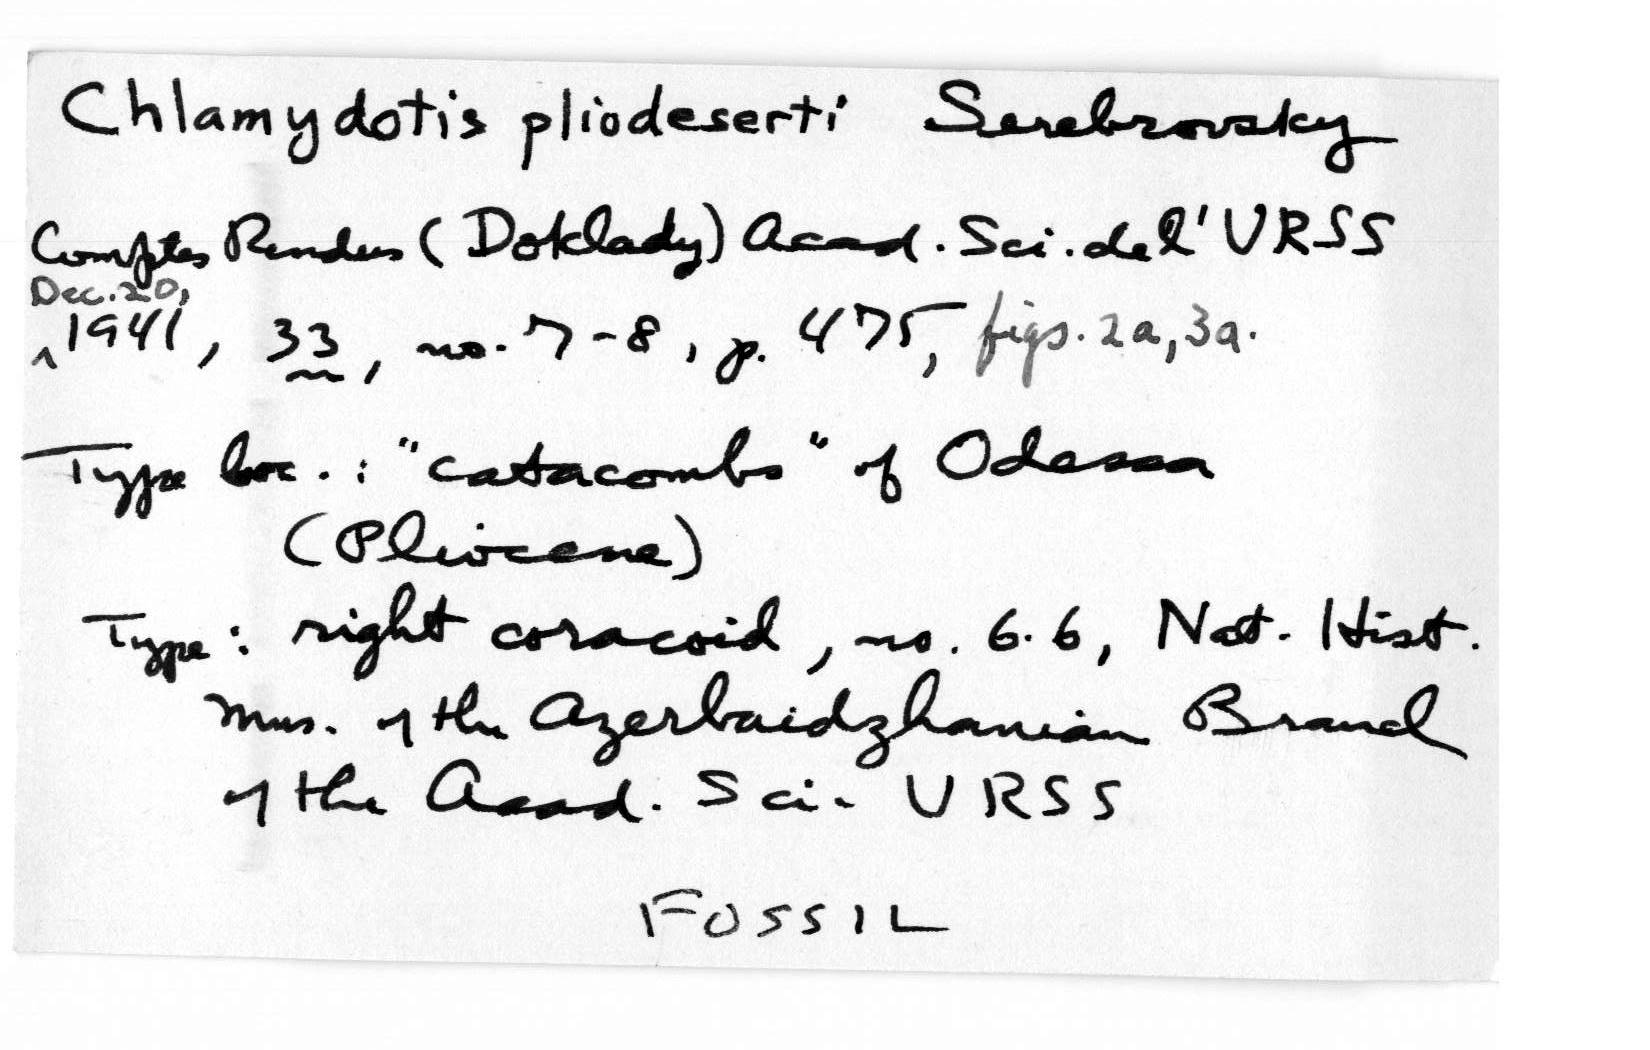 Chlamydotis pliodeserti Serebrovsky
Comptes Rendus (Doklady) Acad. Sci. de l'URSS
Dec. 20,
^1941, 33, no. 7-8, p. 475, figs. 2a, 3a.
Type loc.: "catacombs" of Odessa
(Pliocene)
Type: right coracoid, no. 6.6, Nat. Hist.
Mus. of the Azerbaidzhanian Branch
of the Acad. Sci. URSS
FOSSIL